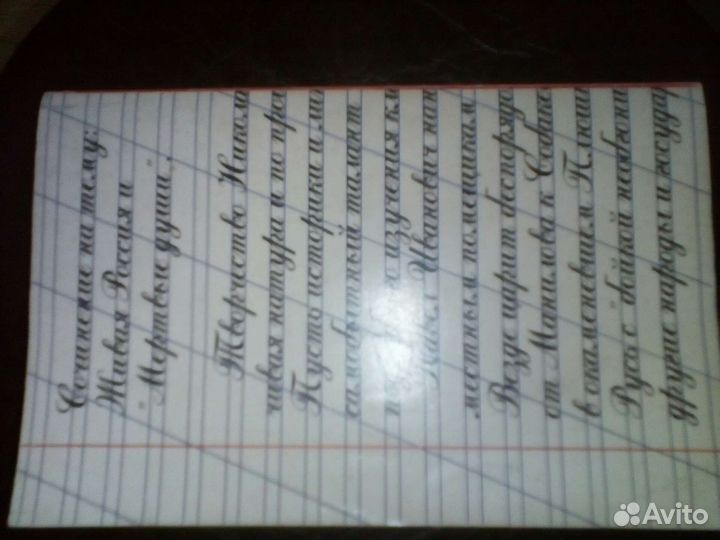 Сочинение на тему:
Живая Россия и
"Мертвые души".
Творчество Никола
чивая натура и по пра
Пусть историки и ли
самобытный талант
изучения кл
Павел Иванович нан
местным помещикам
Везде царит беспорядо
от Манилова к Собаке
в окаменевшем Плюшк
Русь с "бойкой необъкн
другие народы и государ
Avito